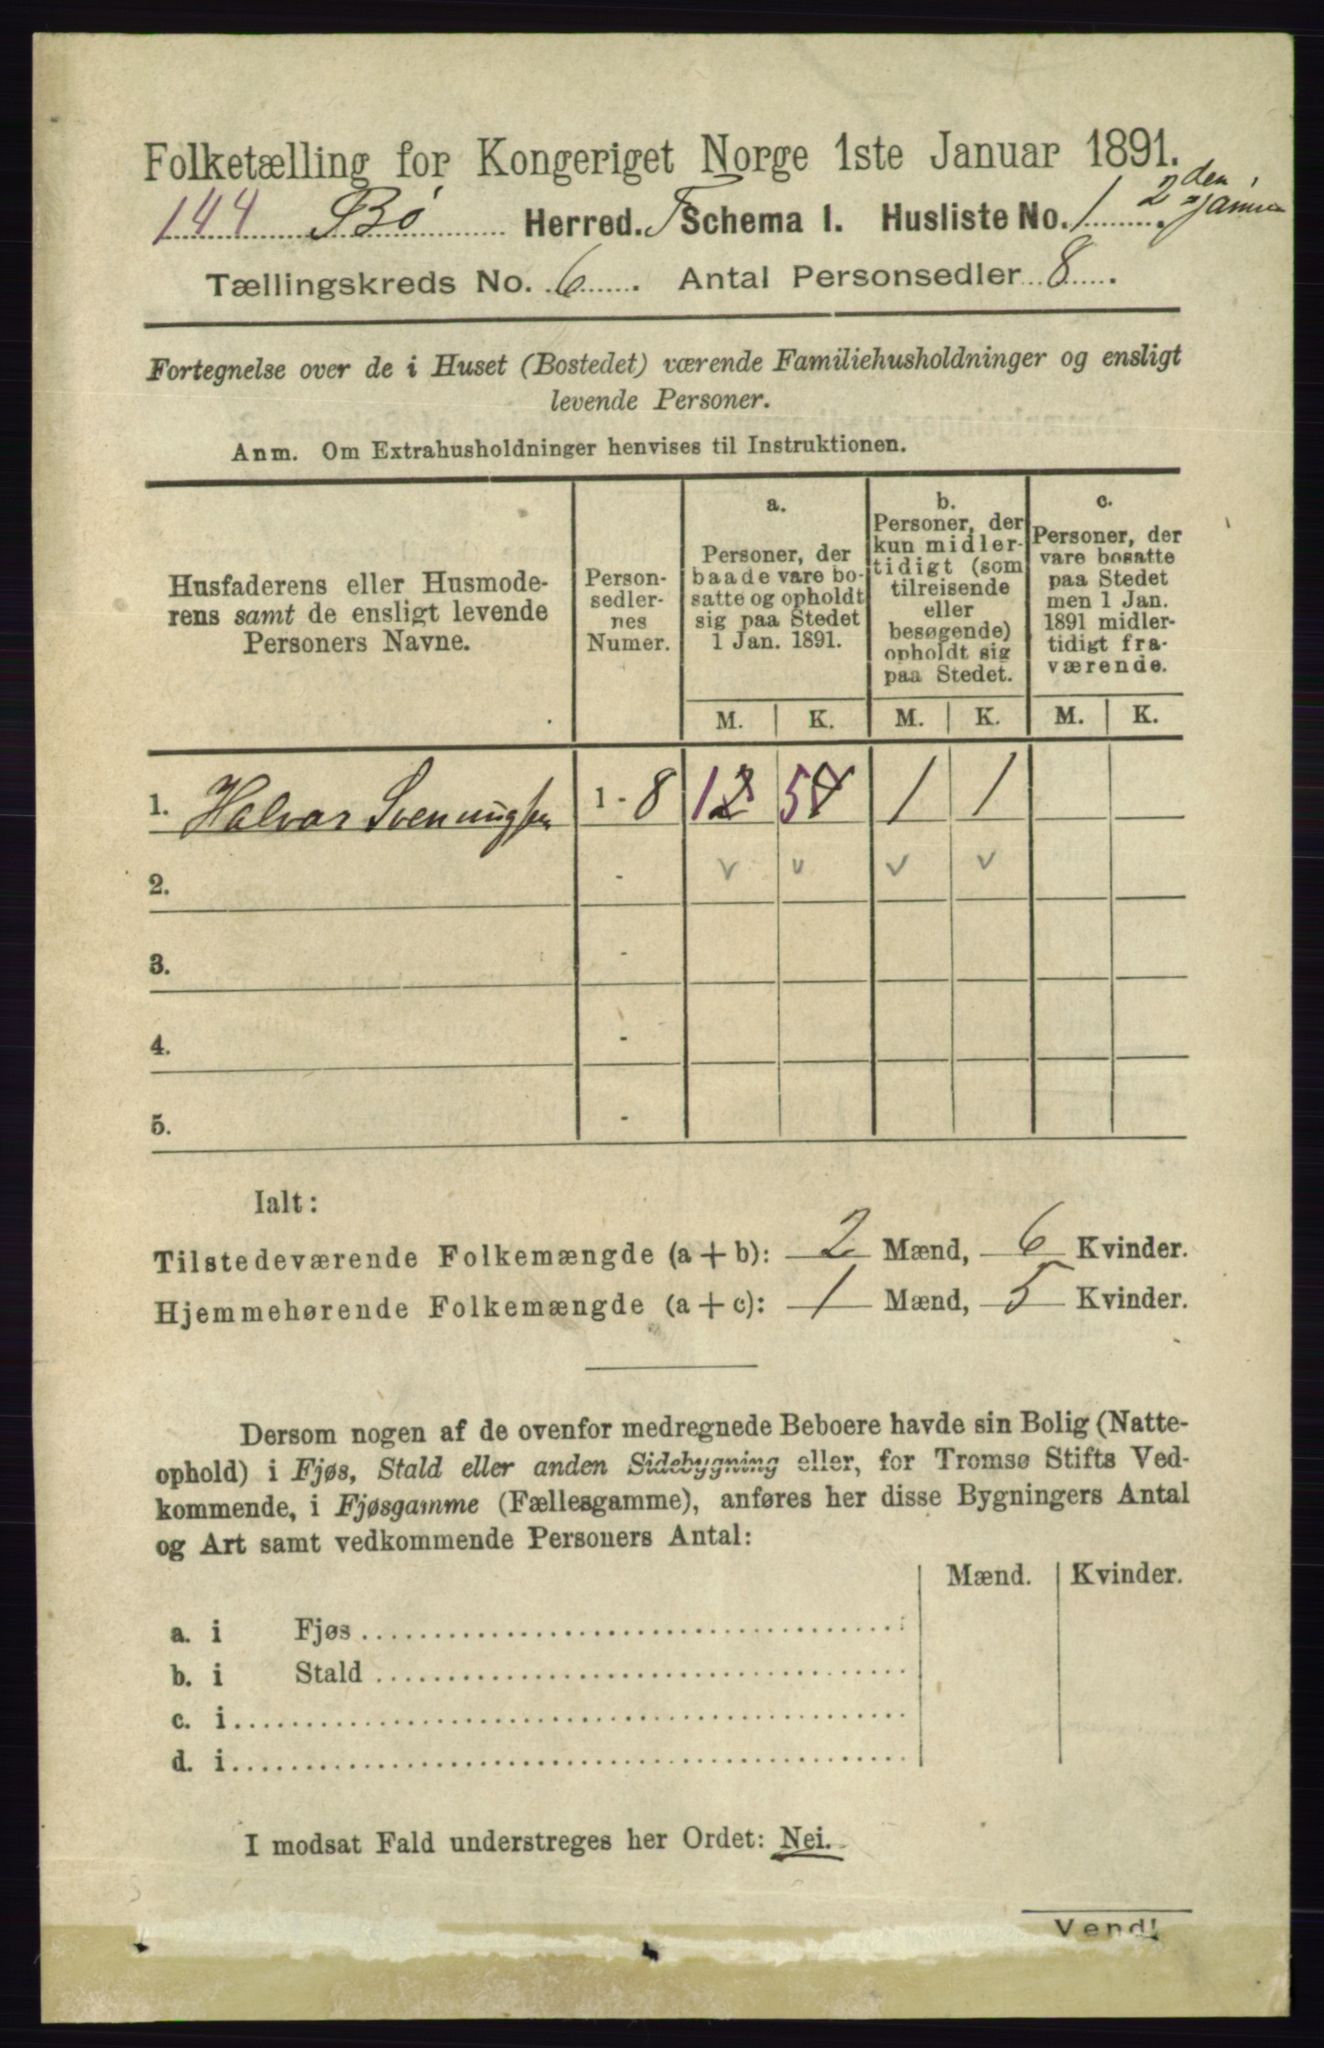 Folketælling for Kongeriget Norge 1ste Januar 1891.
144 Bø Herred. T Schema I. Husliste No. 1 2den Januar
Tællingskreds No. 6. Antal Personsedler 8.
Fortegnelse over de i Huset (Bostedet) værende Familiehusholdninger og ensligt
levende Personer.
Anm. Om Extrahusholdninger henvises til Instruktionen.
Husfaderens eller Husmode-
rens samt de ensligt levende
Personers Navne.
Person-
sedler-
nes
Numer.
a.
Personer, der
baade vare bo-
satte og opholdt
sig paa Stedet
1 Jan. 1891.
b.
Personer, der
kun midler-
tidigt (som
tilreisende
eller
besøgende)
opholdt sig
paa Stedet.
c.
Personer, der
vare bosatte
paa Stedet
men 1 Jan.
1891 midler-
tidigt fra-
værende.
M. K. M. K. M. K.
1. Halvor Svenungsen 1 - 8 1 5 1 1
2. - v v v v
3. -
4. -
5. -
Ialt:
Tilstedeværende Folkemængde (a + b): 2 Mænd, 6 Kvinder.
Hjemmehørende Folkemængde (a + c): 1 Mænd, 5 Kvinder.
Dersom nogen af de ovenfor medregnede Beboere havde sin Bolig (Natte-
ophold) i Fjøs, Stald eller anden Sidebygning eller, for Tromsø Stifts Ved-
kommende, i Fjøsgamme (Fællesgamme), anføres her disse Bygningers Antal
og Art samt vedkommende Personers Antal:
Mænd. Kvinder.
a. i Fjøs
b. i Stald
c. i
d. i
I modsat Fald understreges her Ordet: Nei.
Vend!